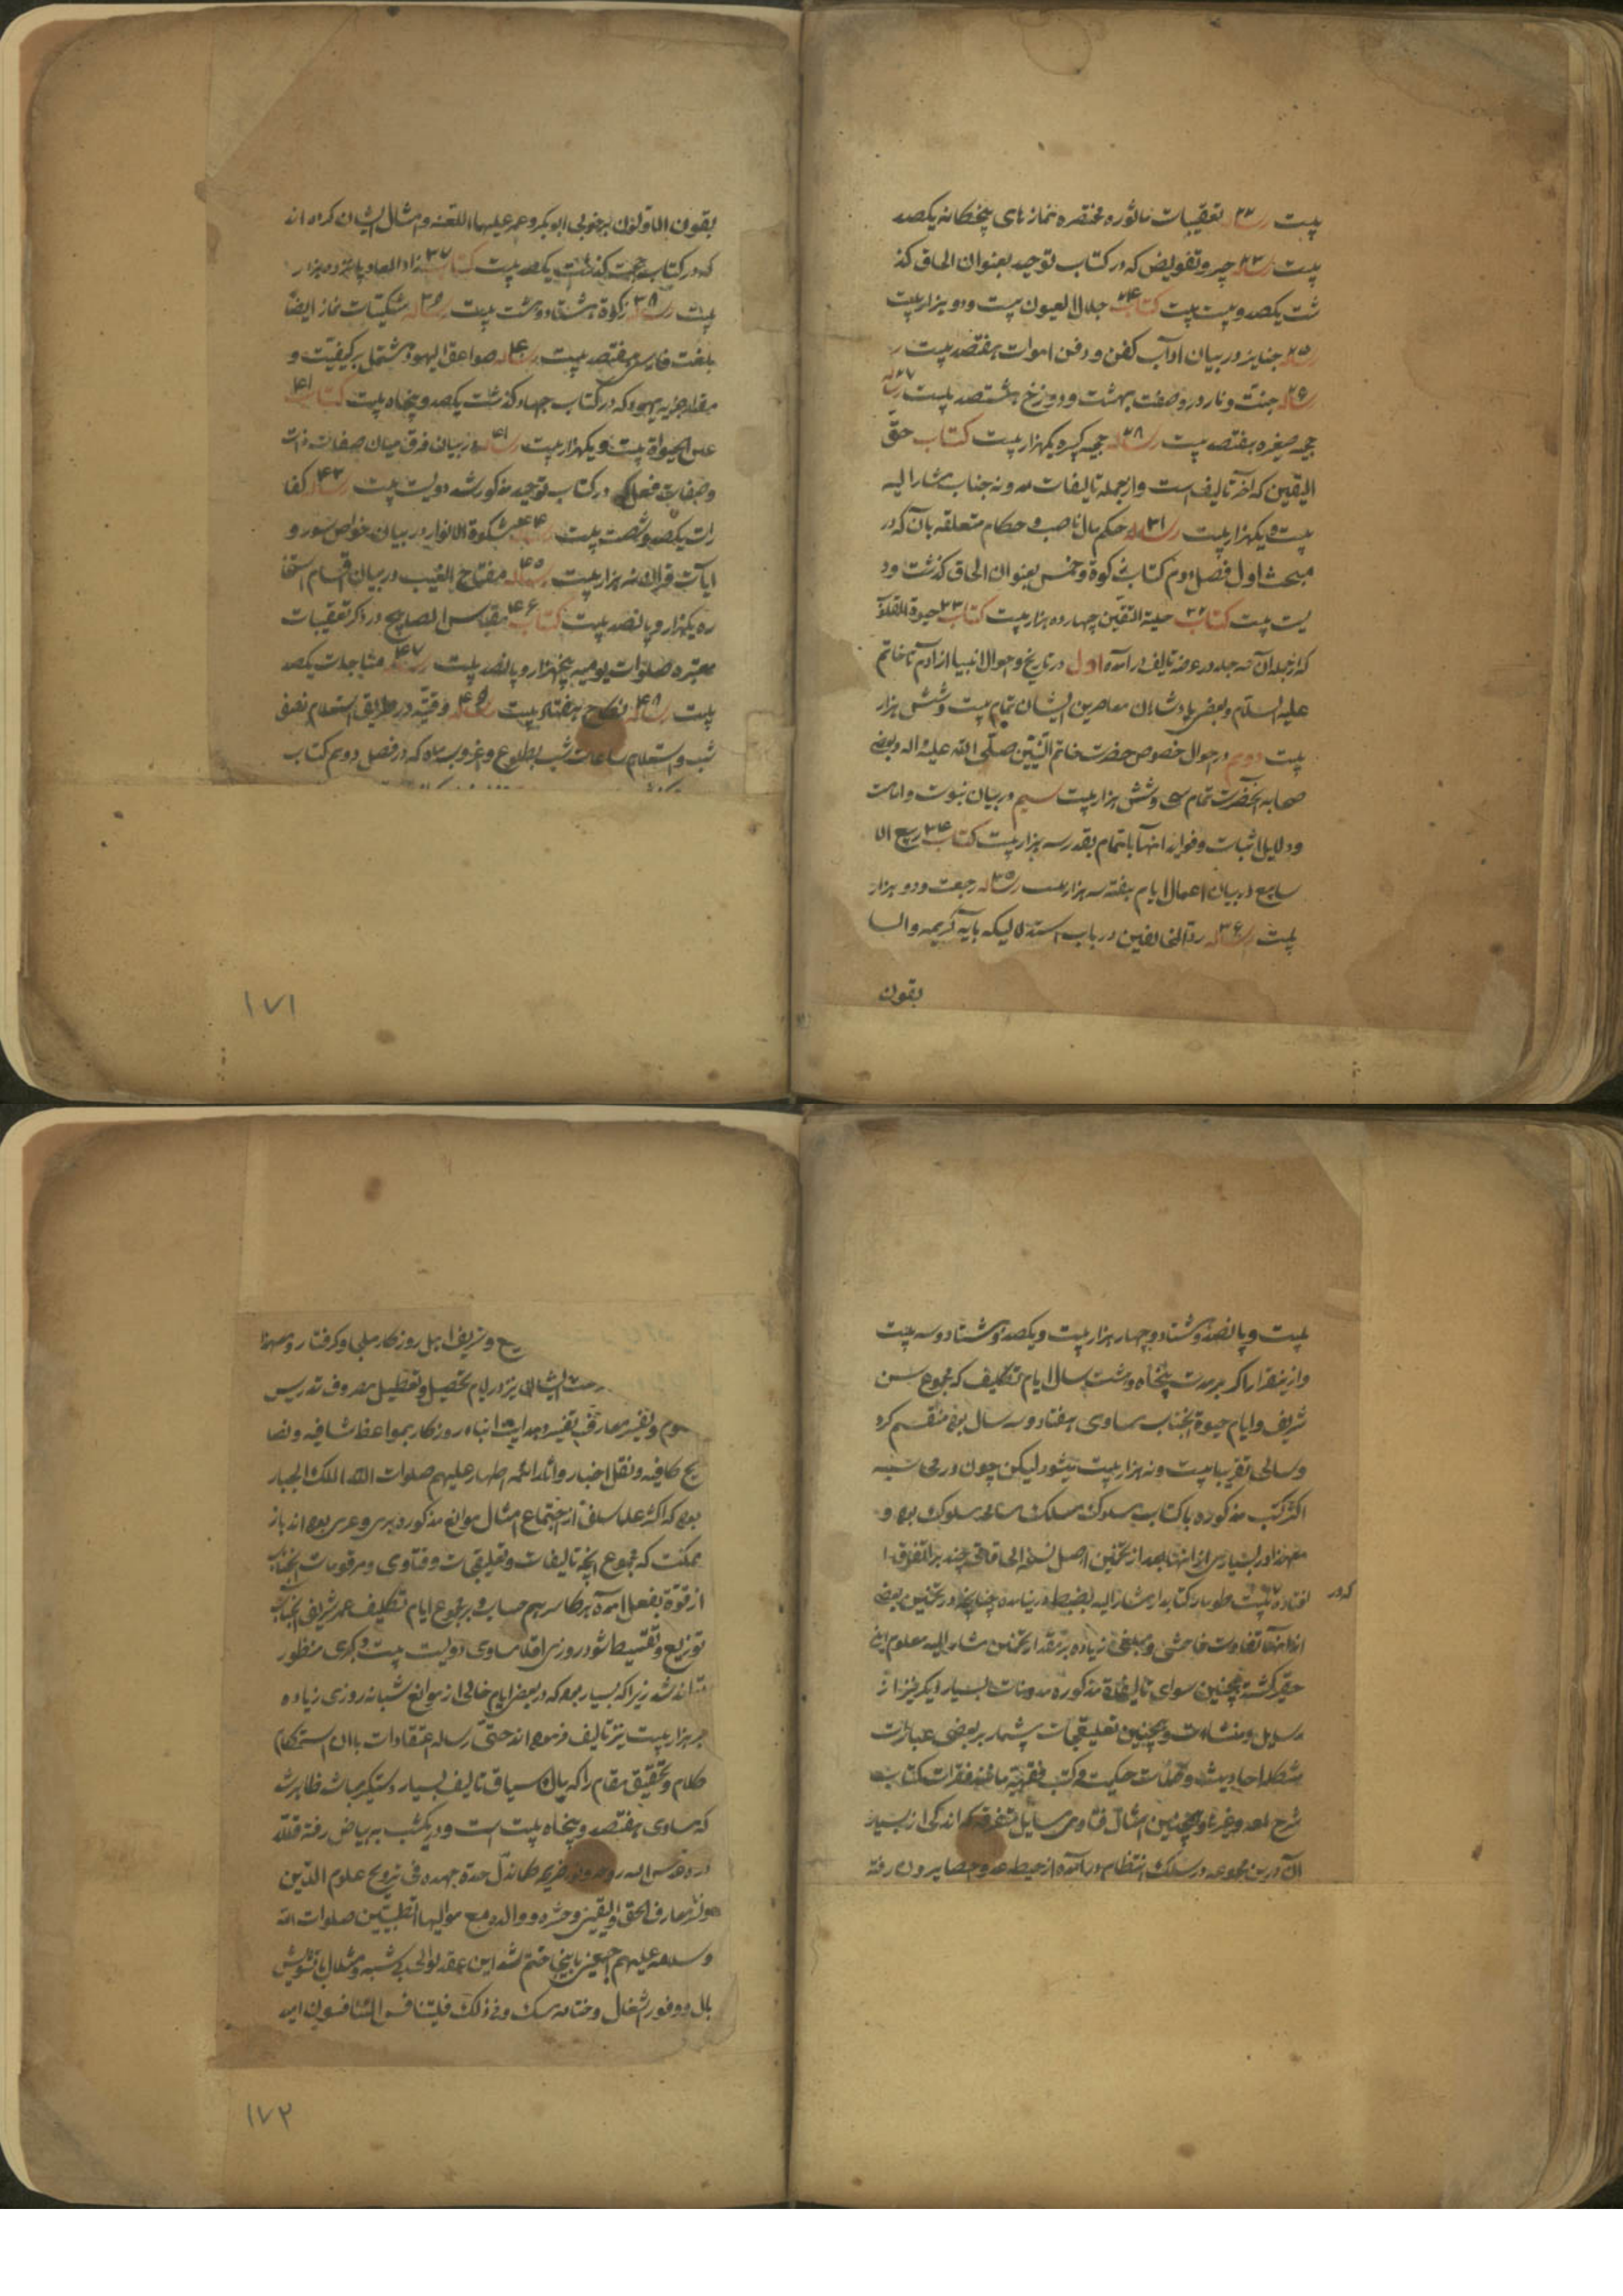 بیت رساله ۲۲ تعقیبات ماثوره مختصره نمازهای پنجکانه یکصد
بیت رساله ۲۳ جبر و تفویض که در کتاب توحید بعنوان الحاق کذ
شت یکصد و بیست بیت کتاب ۲۴ جلاء العیون بیست و دو هزار بیت
رساله ۲۵ جنایز در بیان اداب کفن و دفن اموات هفتصد بیت
رساله ۲۶ جنت و نار در وصف بهشت و دوزخ هشتصد بیت رساله ۲۷
حجیه صغیره هفتصد بیت رساله ۲۸ حجیه کبیره یکهزار بیت کتاب حق
الیقین که آخر تالیف است و از جمله تالیفات مدونه جناب مشار الیه
بیست و یکهزار بیت رساله ۳۱ حکم مال ناصب و احکام متعلقه بآن که در
مبحث اول فصل دوم کتاب زکوة و خمس بعنوان الحاق کذشت دو
یست بیت کتاب ۳۲ حلیة المتقین چهارده هزار بیت کتاب ۳۳ حیوة القلوب
که از جلد آن سه جلد در عرصه تالیف در آمده اول در تاریخ و احوال انبیا از آدم تا خاتم
علیه السلام و بعضی پادشاهان معاصرین ایشان تمام بیست و شش هزار
بیت دوم در احوال خصوص حضرت خاتم النبیین صلی الله علیه و اله و بعضی
صحابه آنحضرت تمام سی و شش هزار بیت سیم در بیان نبوت و امامت
و دلایل اثبات و فواید انها باتمام بقدر سه هزار بیت کتاب ۳۴ ربیع الا
سابیع در بیان اعمال ایام هفته سه هزار بیت رساله ۳۵ رجعت و دو هزار
بیت رساله ۳۶ رد المخالفین در باب استدلالیکه بآیه کریمه والسا
بقون
بقون الاولون بر خوبی ابوبکر و عمر علیهما اللعنه و امثال ایشان کرده اند
که در کتاب حجت کذشت یکصد بیت کتاب ۳۷ زاد المعاد پانزده هزار
بیت رساله ۳۸ زکوة هشتاد و هشت بیت رساله ۳۹ شکیات نماز ایضا
بلغت فارسی هفتصد بیت رساله ۴۰ صواعق الیهود مشتمل بر کیفیت و
مقدار جزیه یهود که در کتاب جهاد کذشت یکصد و پنجاه بیت کتاب ۴۱
عین الحیوة بیست و یکهزار بیت رساله در بیان فرق میان صفات ذات
و صفات فعل که در کتاب توحید مذکور شد دویست بیت رساله ۴۳ کفا
رات یکصد و شصت بیت ۴۴ مشکوة الانوار در بیان خواص سور و
ایات قران نه هزار بیت رساله ۴۵ مفتاح الغیب در بیان اقسام استخا
ره یکهزار و پانصد بیت کتاب ۴۶ مقباس المصابیح در ذکر تعقیبات
معتبره صلوات یومیه پنجهزار و پانصد بیت رساله ۴۷ مناجات یکصد
بیت رساله ۴۸ نکاح هفتاد بیت رساله ۴۹ وقتیه در طریق استعلام نصف
شب و استعلام ساعات شب بطلوع و غروب ماه که در فصل دوم کتاب
۱۷۱
بیت و پانصد و هشتاد و چهار هزار بیت و یکصد و هشتاد و سه بیت
و از ینقرار اکر بر مدت پنجاه و هشت سال ایام تکلیف که مجموع سن
شریف و ایام حیوة آنجناب مساوی هفتاد و سه سال بوده منقسم کرد
و سالی تقریبا بیست و نه هزار بیت میشود لیکن چون در
اکثر کتب مذکوره با کتاب سلوک مسلک سلوک بوده و
معهذا در بسیاری از انها بعد از تخمین اصل نسخه الحاقات چند بر التفرق ا
که در
افتاده ثبت طومار کتابدار مشار الیه بضبط در نیامده چنانچه در تخمین بعضی
از انها تفاوت فاحش و مبلغی زیاده بر مقدار تخمین مشار الیه معلوم این
حقیر کشته همچنین سوای تالیفات مذکوره مدونات بسیار دیکر نیز از
رسایل و منشات و همچنین تعلیقات بیشمار بر بعضی عبارات
مشکله احادیث و کلمات حکمیت و کتب فقهیه مانند فقرات کتاب
شرح لمعه و غیرها و همچنین امثال فتاوی مسایل متفرقه که اندکی از بسیار
آن درین مجموعه در سلک انتظام در آمده از حیطه عد و احصا بیرون رفته
یح و تزییف اهل روزکار مبتلی و کرفتار و معهذا
ایشان نیز در ایام تحصیل و تعطیل مصروف تدریس
علوم و تفسیر معارف تفسیر و هدایت ابناء روزکار بمواعظ شافیه و نصا
یح کافیه و نقل اخبار و آثار ائمه اطهار علیهم صلوات الله الملک الجبار
بوده که اکثر علماء سلف از اجتماع امثال موانع مذکوره بری و عری بوده اند باز
ممکنست که مجموع آنچه تالیفات و تعلیقات و فتاوی و مرقومات آنجناب
از قوة بفعل آمده هرکاه سرهم حساب و بر مجموع ایام تکلیف عمر شریف آنجناب
توزیع و تقسیط شود روزی اقلا مساوی دویست بیت و کسری منظور
تواند شد زیرا که بسیار بوده که در بعض ایام خالی از موانع شبانه روزی زیاده
بر هزار بیت نیز تالیف فرموده اند حتی رساله اعتقادات باان استحکام
کلام و تحقیق مقام را که باان سیاق تالیف بسیار دستکیر میباشد ظاهر شد
که مساوی هفتصد و پنجاه بیت است و در یکشب ببیاض رفته فلله
دره و قدس الله روحه و نور ضریحه کما بذل جده و جهده فی ترویج علوم الدین
و نشر معارف الحق و الیقین و حشره و والده مع موالیهما الطیبین صلوات الله
و سلامه علیهم اجمعین باینجا ختم شد این عقد لوالی بی شبه و مثال با تشویش
بال و وفور اشغال و ختامه مسک و فی ذلک فلیتنافس المتنافسون امید
۱۷۲